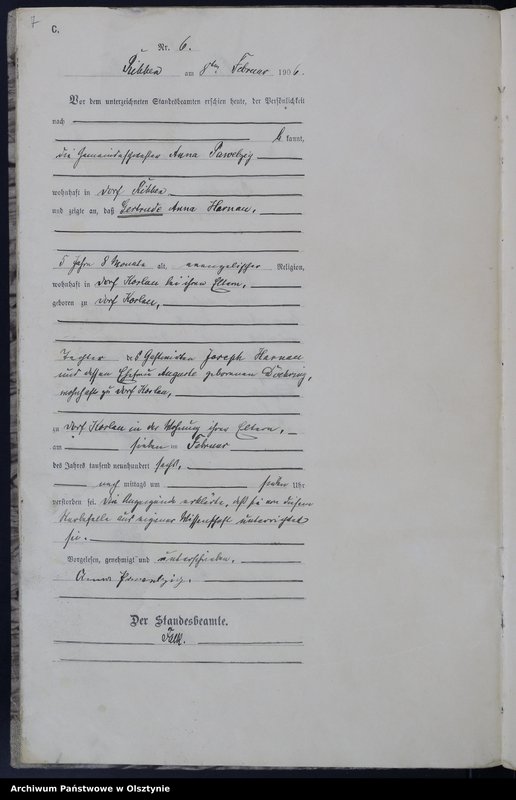 7
C.
Nr. 6.
Ribben am 8ten Februar 1906.
Vor dem unterzeichneten Standesbeamten erschien heute, der Persönlichkeit
nach
bekannt,
die Gemeindeschwester Anna Pawelzig
wohnhaft in Dorf Ribben
und zeigte an, daß Gertrude Anna Harnau,
5 Jahre 8 Monate alt, evangelischer Religion,
wohnhaft in Dorf Koslau bei ihren Eltern,
geboren zu Dorf Koslau,
Tochter des Joseph Harnau
und dessen Ehefrau Auguste geborenen Doehring,
wohnhaft zu Dorf Koslau,
zu Dorf Koslau in der Wohnung ihrer Eltern,
am sieben Februar
des Jahres tausend neunhundert sechs,
nachmittags um sieben Uhr
verstorben sei. Die Anzeigende erklärte, daß sie von diesem
Sterbefalle aus eigener Wissenschaft unterrichtet
sei.
Vorgelesen, genehmigt und unterschrieben.
Anna Pawelzig.
Der Standesbeamte.
Archiwum Państwowe w Olsztynie